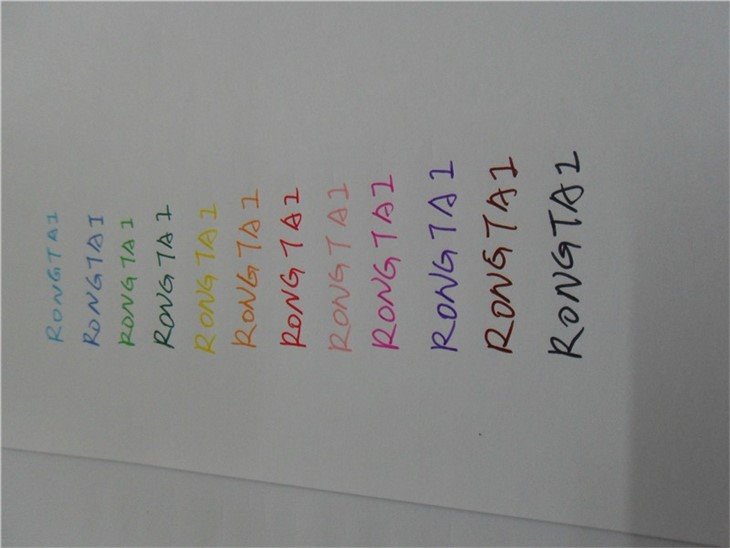 RONGTAI
RONGTAI
RONGTAI
RONGTAI
RONGTAI
RONGTAI
RONGTAI
RONGTAI
RONGTAI
RONGTAI
RONGTAI
RONGTAI